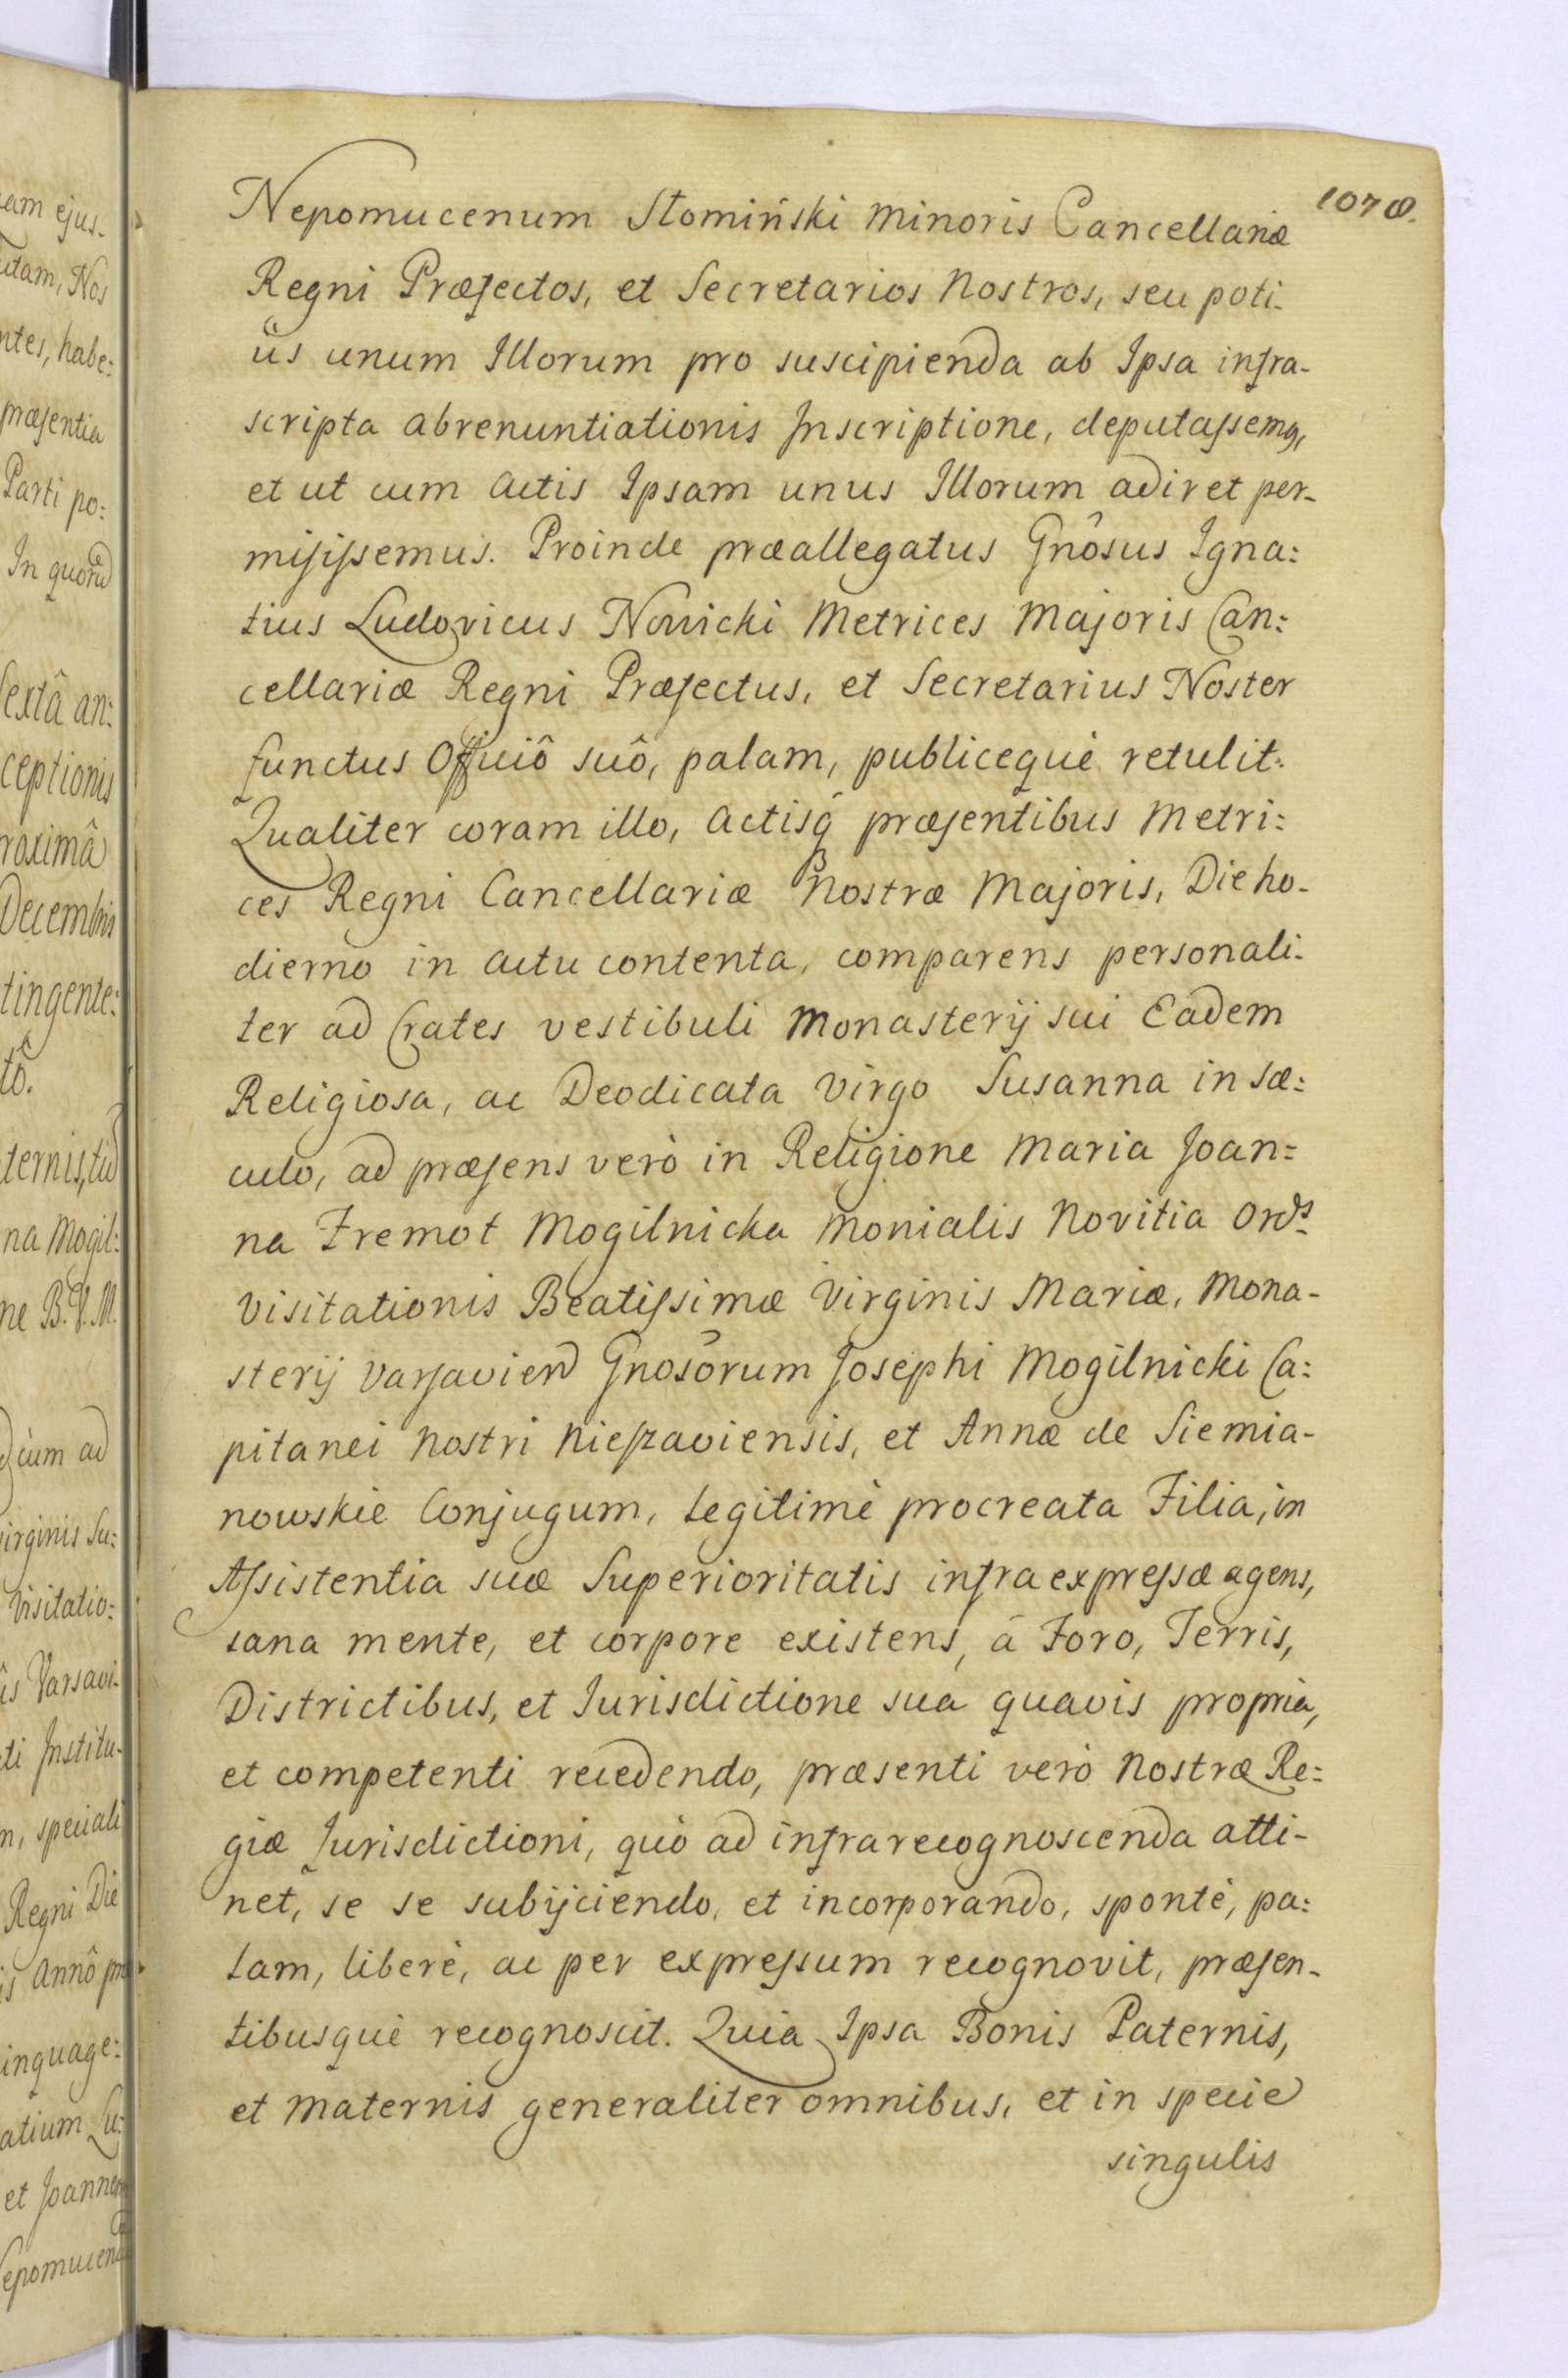 1070.
Nepomucenum Słomiński Minoris Cancellariæ
Regni Præfectos, et Secretarios Nostros, seu poti-
ùs unum Illorum pro suscipienda ab Ipsa infra-
scripta abrenuntiationis Inscriptione, deputassemq,
et ut cum Actis Ipsam unus Illorum adiret per-
misissemus. Proinde præallegatus Gnôsus Igna:
tius Ludovicus Nowicki Metrices Majoris Can:
cellariæ Regni Præfectus, et Secretarius Noster
functus Officiô suô, palam, publicequè retulit.
Qualiter coram illo, Actisq̃ præsentibus Metri:
ces Regni Cancellariæ Nostræ Majoris, Die ho-
dierno in actu contenta, comparens personali-
ter ad Crates vestibuli Monasterij sui Eadem
Religiosa, ac Deodicata Virgo Susanna in sæ:
culo, ad præsens verò in Religione Maria Joan=
na Fremot Mogilnicka Monialis Novitia Ordˢ
Visitationis Beatissimæ Virginis Mariæ, Mona-
sterij Varsavien Gnosôrum Josephi Mogilnicki Ca:
pitanei Nostri Nieszaviensis, et Annæ de Siemia-
nowskie Conjugum, Legitimè procreata Filia, in
Assistentia suæ Superioritatis infraexpressæ agens,
sana mente, et corpore existens, â Foro, Terris,
Districtibus, et Jurisdictione sua quavis propria,
et competenti recedendo, præsenti verò Nostræ Re:
giæ Jurisdictioni, quò ad infrarecognoscenda atti-
net, se se subijciendo, et incorporando, spontè, pa:
lam, liberè, ac per expressum recognovit, præsen-
tibusquè recognoscit. Quia Ipsa Bonis Paternis,
et Maternis generaliter omnibus, et in specie
singulis